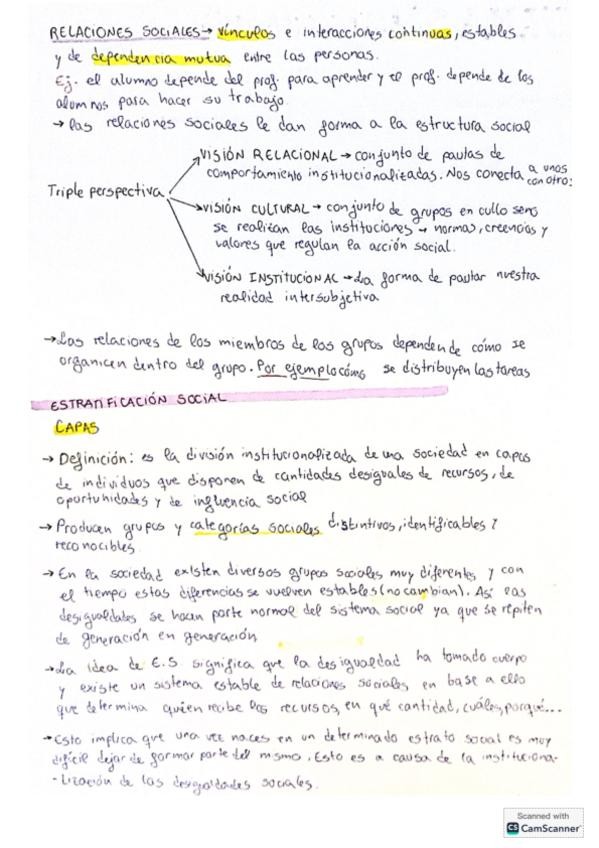 RELACIONES SOCIALES → vínculos e interacciones continuas, estables
y de dependencia mutua entre las personas.
Ej. el alumno depende del prof. para aprender y el prof. depende de los
alumnos para hacer su trabajo.
→ las relaciones sociales le dan forma a la estructura social
VISIÓN RELACIONAL → conjunto de pautas de
comportamiento institucionalizadas. Nos conecta a unos
con otros
Triple perspectiva
VISIÓN CULTURAL → conjunto de grupos en cullo seno
se realizan las instituciones → normas, creencias y
valores que regulan la acción social.
VISIÓN INSTITUCIONAL → La forma de pautar nuestra
realidad intersubjetiva
→ Las relaciones de los miembros de los grupos dependen de cómo se
organicen dentro del grupo. Por ejemplo cómo se distribuyen las tareas
ESTRATIFICACIÓN SOCIAL
CAPAS
→ Definición: es la división institucionalizada de una sociedad en capas
de individuos que disponen de cantidades desiguales de recursos, de
oportunidades y de influencia social
→ Producen grupos y categorías sociales distintivos, identificables y
reconocibles
→ En la sociedad existen diversos grupos sociales muy diferentes y con
el tiempo estas diferencias se vuelven estables (no cambian). Así las
desigualdades se hacen parte normal del sistema social ya que se repiten
de generación en generación
→ La idea de E.S significa que la desigualdad ha tomado cuerpo
y existe un sistema estable de relaciones sociales en base a ello
que determina quien recibe los recursos, en qué cantidad, cuáles, porqué...
→ Esto implica que una vez naces en un determinado estrato social es muy
difícil dejar de formar parte del mismo. Esto es a causa de la instituciona-
-lización de las desigualdades sociales.
Scanned with
CS CamScanner